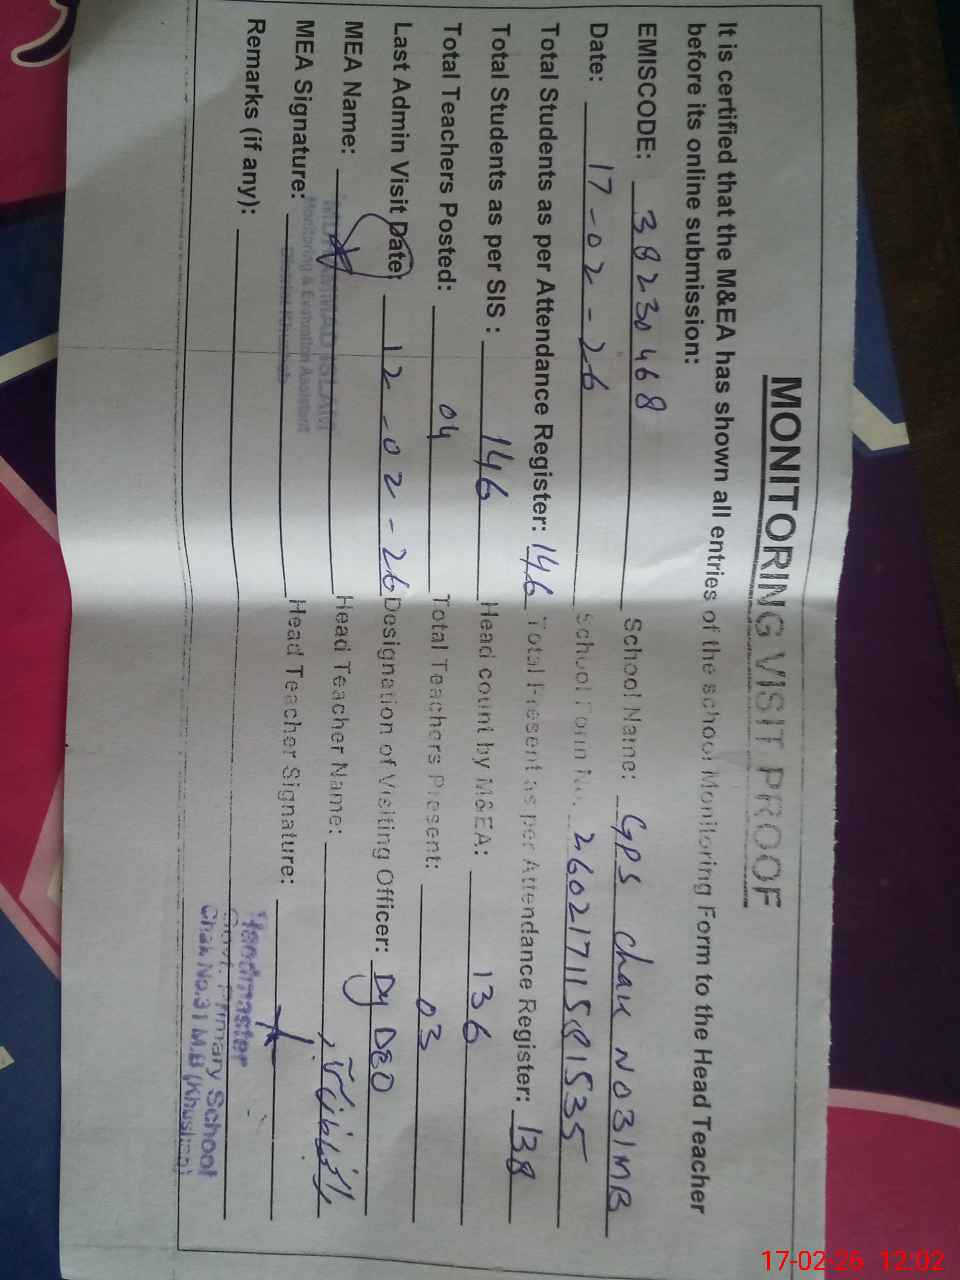 MONITORING VISIT PROOF
It is certified that the M&EA has shown all entries of the school Monitoring Form to the Head Teacher
before its online submission:
EMISCODE: 38230468 School Name: GPS Chak No 31 MB
Date: 17-02-26 School Form No. 
Total Students as per Attendance Register: 146 Total Present as per Attendance Register: 138
Total Students as per SIS : 146 Head count by M&EA: 136
Total Teachers Posted: 04 Total Teachers Present: 03
Last Admin Visit Date: 12-02-26 Designation of Visiting Officer: Dy DEO
MEA Name: Head Teacher Name:
MUHAMMAD ISLAM
MEA Signature: Head Teacher Signature:
Monitoring & Evaluation Assistant
Remarks (if any):
Headmaster
Govt. Primary School
Chak No.31 M.B (Khushab)
17-02-26 12:02